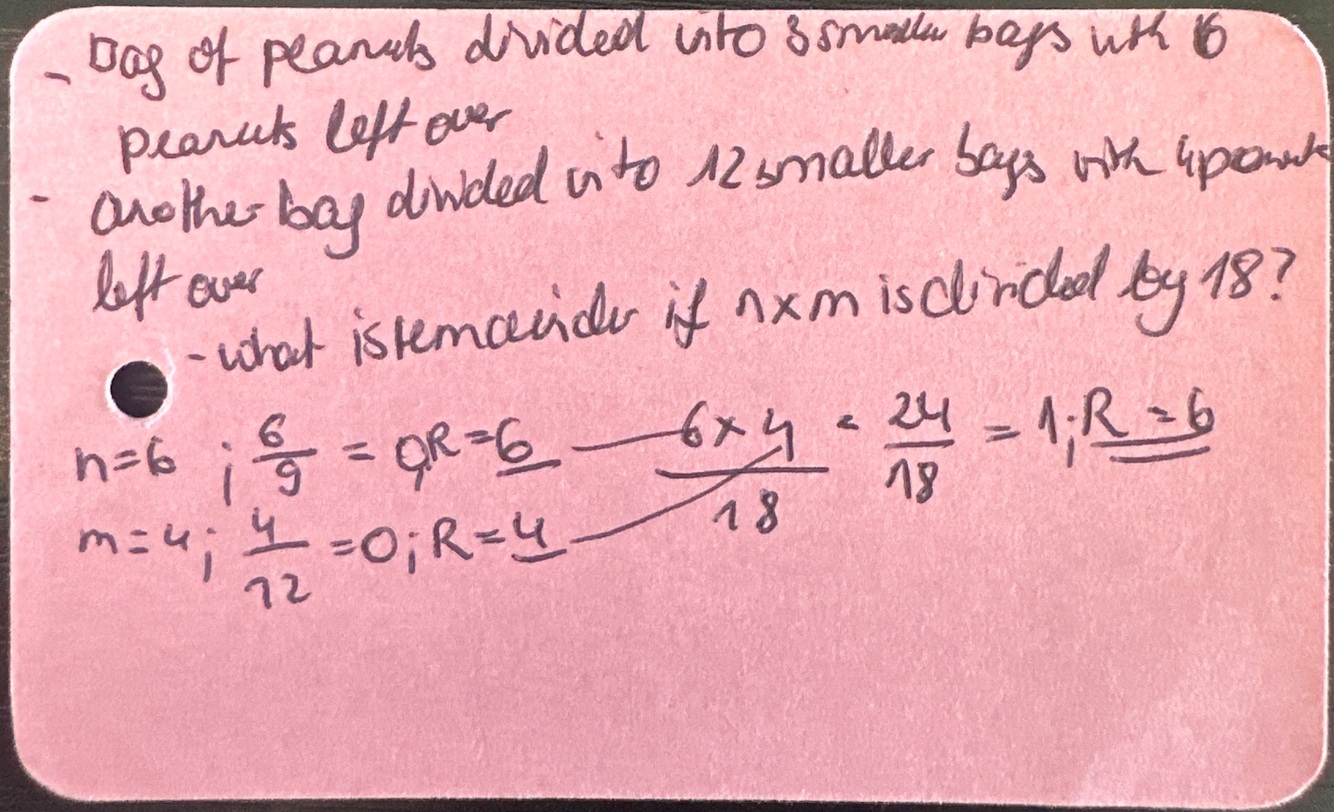 - Bag of peanuts divided into 9 smaller bags with 6
peanuts left over
- another bag divided into 12 smaller bags with 4 peanuts
left over
- what is remainder if n x m is divided by 18?
n=6 ; 6/9 = 0,R=6 — 6x4/18 = 24/18 = 1;R=6
m=4; 4/12 =0; R=4